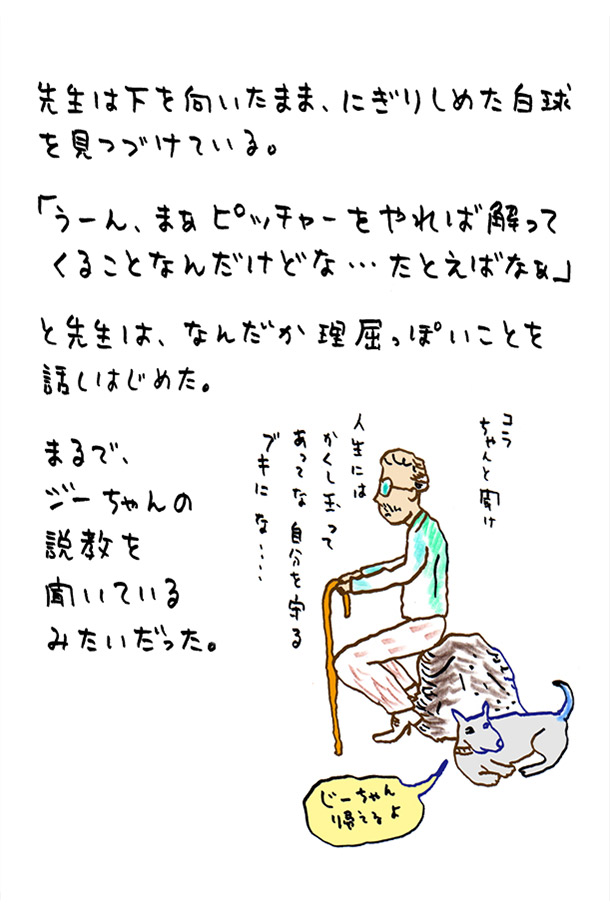 先生は下を向いたまま、にぎりしめた白球
を見つづけている。
「うーん、まぁピッチャーをやれば解って
くることなんだけどな…たとえばなぁ」
と先生は、なんだか理屈っぽいことを
話しはじめた。
まるで、
ジーちゃんの
説教を
聞いている
みたいだった。
コラ
ちゃんと聞け
人生には
かくし玉って
あってな自分を守る
ブキにな‥‥
じーちゃん
帰えるよ